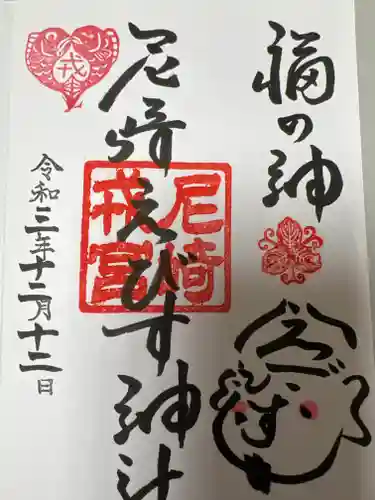 福の神
尼崎えびす神社
尼崎
戎宮
戎
令和三年十二月十二日
えびす